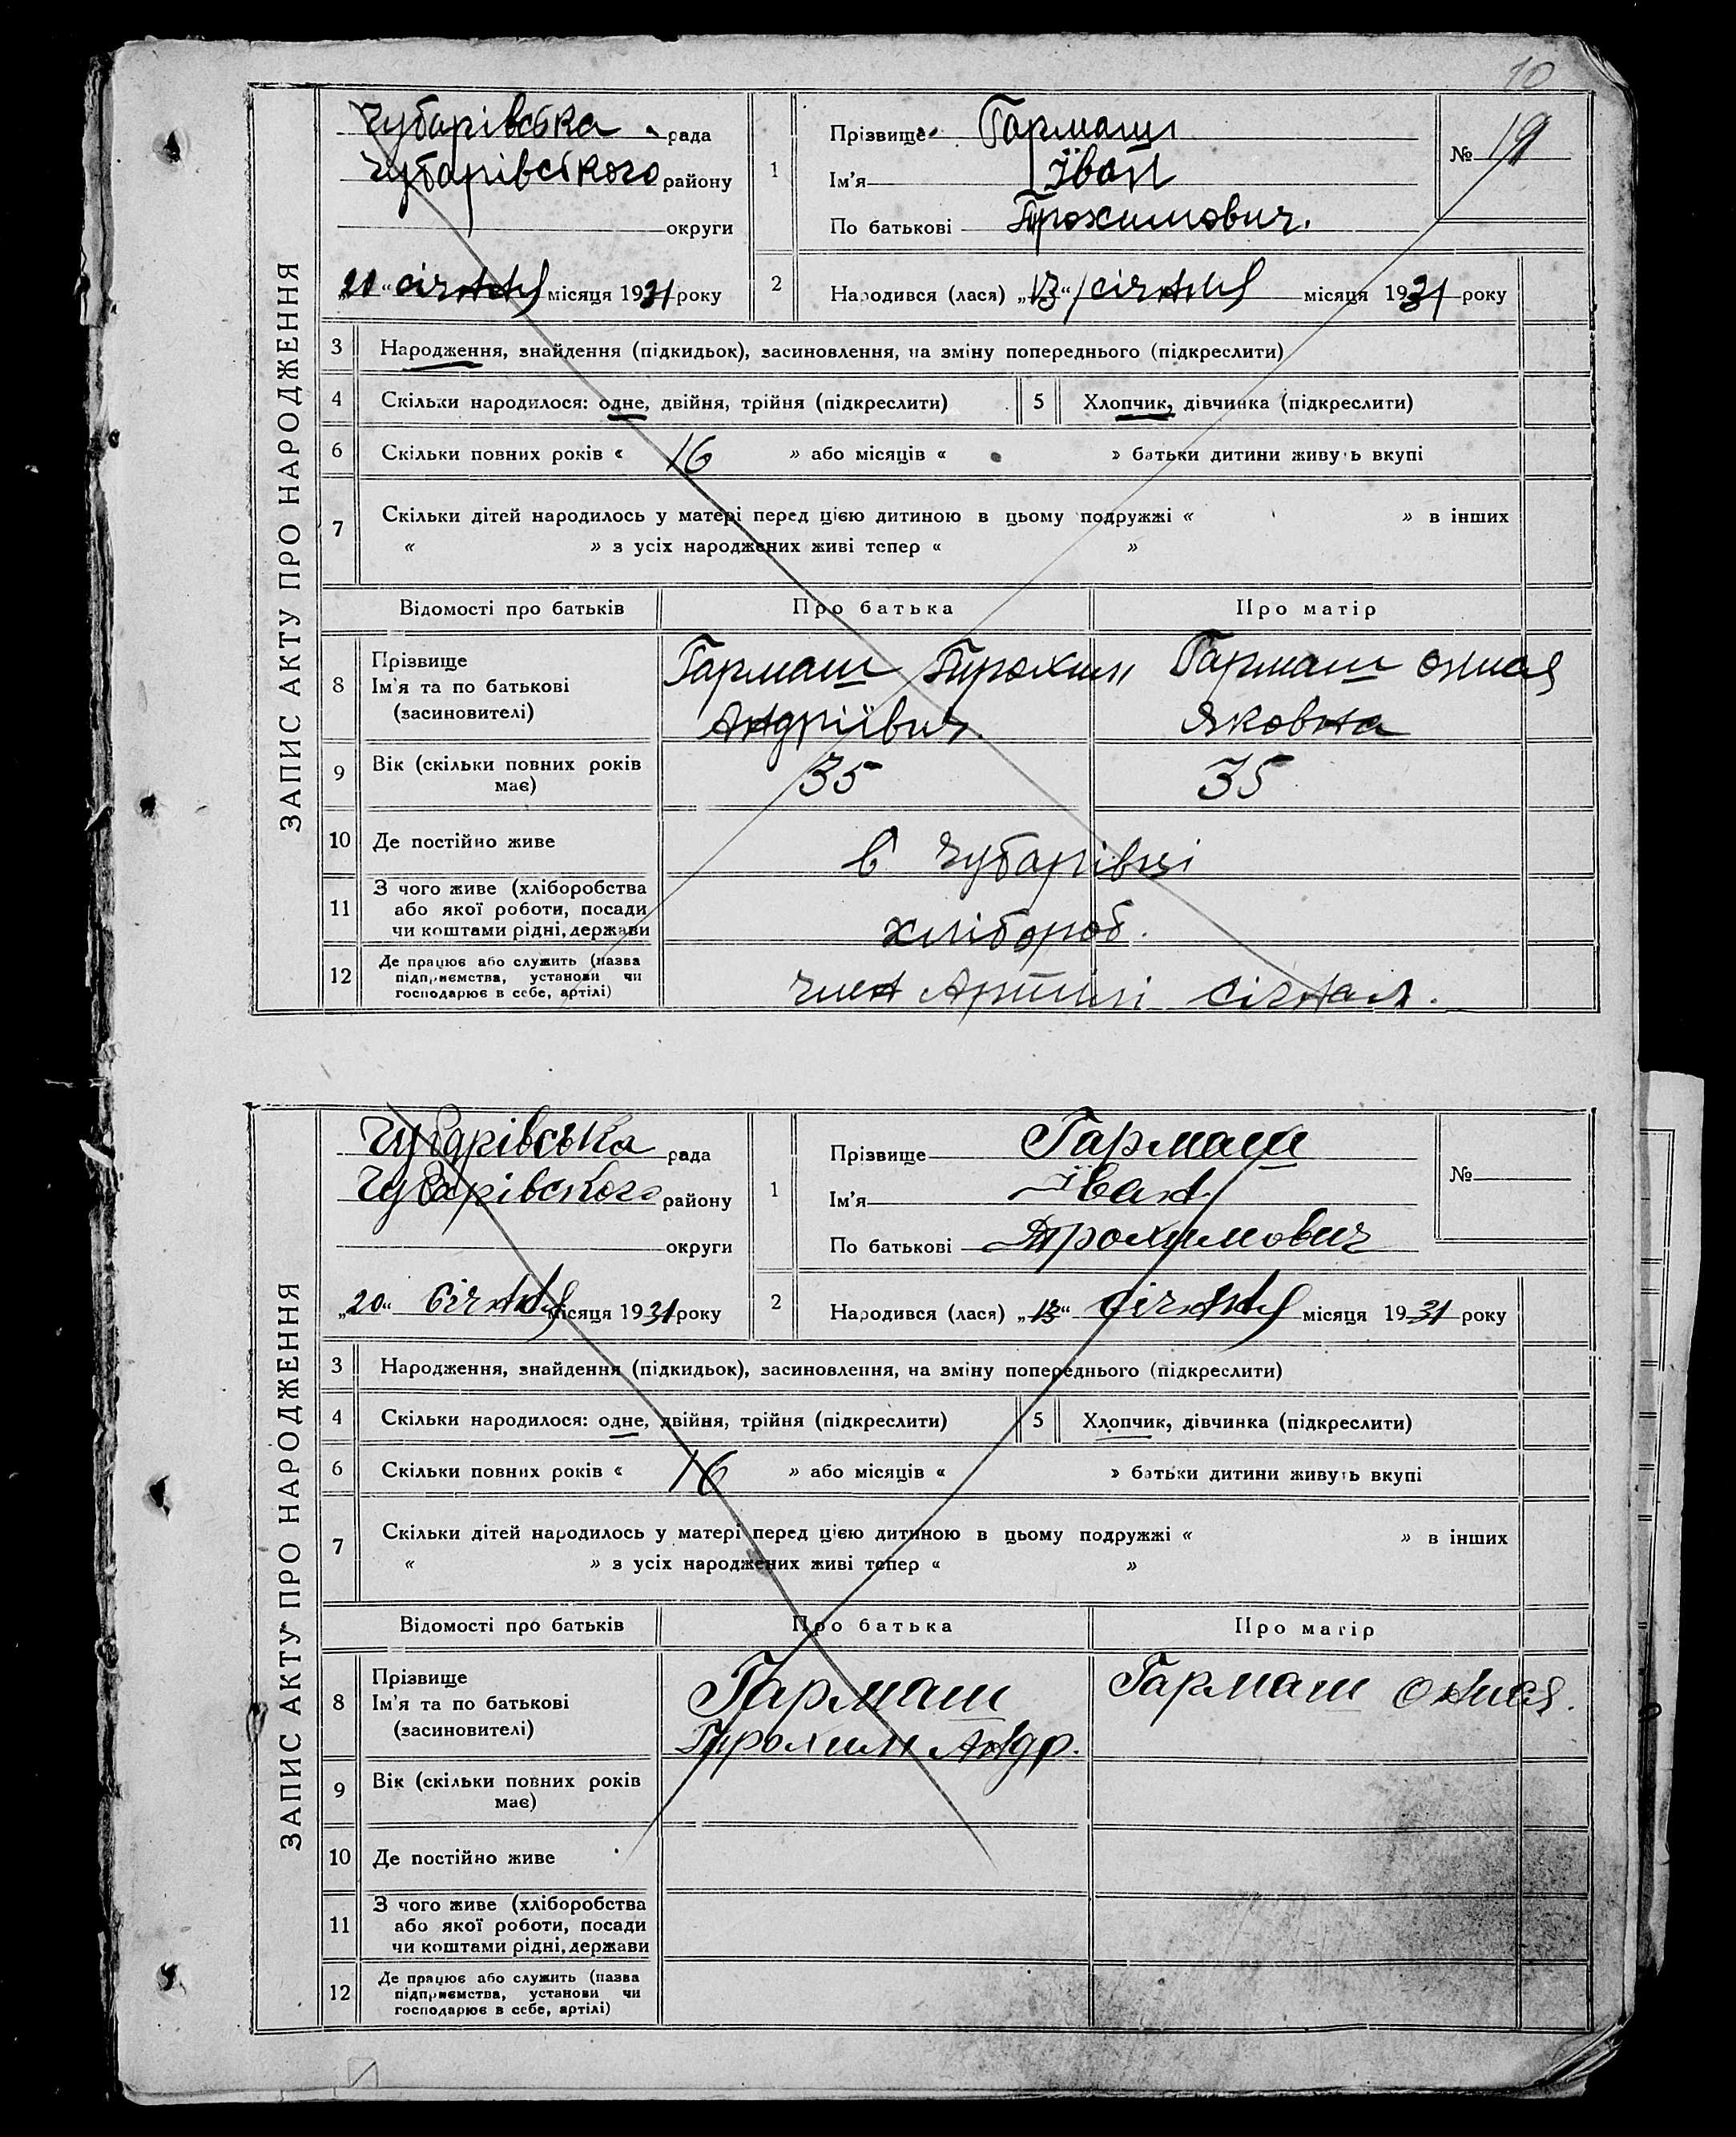 10
ЗАПИС АКТУ ПРО НАРОДЖЕННЯ
Чубарівська рада
Чубарівського району
округи
1
Прізвище Гармаш
Ім'я Іван
По батькові Трохимович.
№ 19
„21“ січня місяця 1931 року
2
Народився (лася) „13“ січня місяця 1931 року
3 Народження, знайдення (підкидьок), засиновлення, на зміну попереднього (підкреслити)
4 Скільки народилося: одне, двійня, трійня (підкреслити) 5 Хлопчик, дівчинка (підкреслити)
6 Скільки повних років « 16 » або місяців « » батьки дитини живуть вкупі
7 Скільки дітей народилось у матері перед цією дитиною в цьому подружжі « » в інших
« » з усіх народжених живі тепер « »
Відомості про батьків Про батька Про матір
8 Прізвище
Ім'я та по батькові
(засиновителі)
Гармаш Трохим
Андріївич
Гармаш
Яковна
9 Вік (скільки повних років
має)
35 35
10 Де постійно живе в Чубарівці
11 З чого живе (хліборобства
або якої роботи, посади
чи коштами рідні, держави
хлібороб.
12 Де працює або служить (назва
підприємства, установи чи
господарює в себе, артілі)
член Артілі
ЗАПИС АКТУ ПРО НАРОДЖЕННЯ
Чубарівська рада
Чубарівского району
округи
1
Прізвище Гармаш
Ім'я Іван
По батькові Трохимович
№
„20“ січня місяця 1931 року
2
Народився (лася) „13“ січня місяця 1931 року
3 Народження, знайдення (підкидьок), засиновлення, на зміну попереднього (підкреслити)
4 Скільки народилося: одне, двійня, трійня (підкреслити) 5 Хлопчик, дівчинка (підкреслити)
6 Скільки повних років « 16 » або місяців « » батьки дитини живуть вкупі
7 Скільки дітей народилось у матері перед цією дитиною в цьому подружжі « » в інших
« » з усіх народжених живі тепер « »
Відомості про батьків Про батька Про матір
8 Прізвище
Ім'я та по батькові
(засиновителі)
Гармаш
Трохим Андр.
Гармаш
9 Вік (скільки повних років
має)
10 Де постійно живе
11 З чого живе (хліборобства
або якої роботи, посади
чи коштами рідні, держави
12 Де працює або служить (назва
підприємства, установи чи
господарює в себе, артілі)